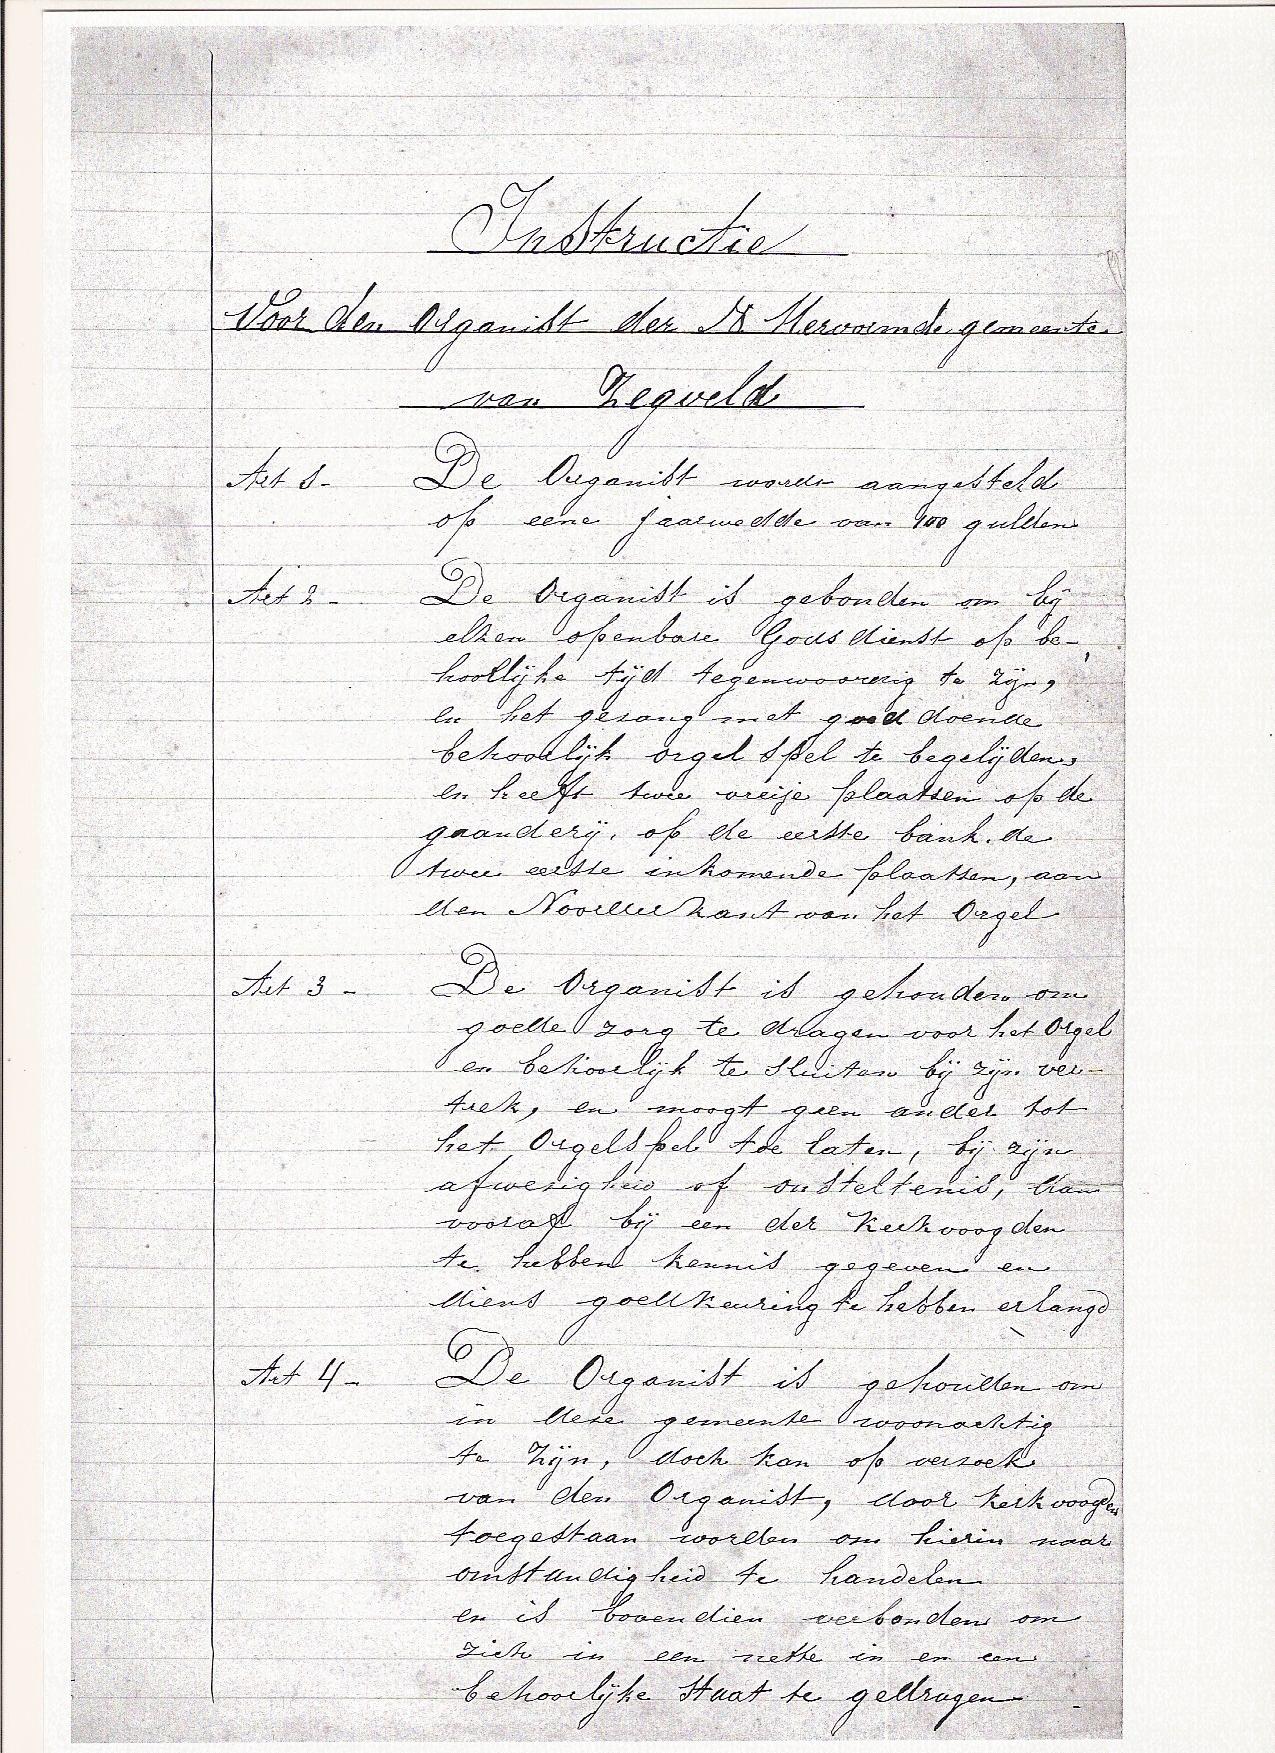 Instructie
Voor den Organist der N Hervormde gemeente
van Zegveld
Art 1- De Organist wordt aangesteld
op eene jaarwedde van 100 gulden
Art 2- De Organist is gebonden om bij
elken openbare Godsdienst op be-
hoorlijke tijd tegenwoordig te zijn,
en het gezang met goed doende
behoorlijk orgel spel te begelijden,
en heeft twee vreije plaatsen op de
gaanderij, op de eerste bank. de
twee eerste inkomende plaatsen, aan
den Noorder kant van het Orgel
Art 3- De Organist is gehouden om
goede zorg te dragen voor het Orgel
en behoorlijk te sluiten bij zijn ver-
trek, en moogt geen ander tot
het Orgelspel toe laten, bij zijn
afwezigheid of onsteltenis, dan
vooraf bij een der Kerkvoogden
te hebben kennis gegeven en
diens goedkeuring te hebben erlangd
Art 4- De Organist is gehouden om
in deze gemeente woonachtig
te zijn, doch kan op verzoek
van den Organist, door kerkvoogden
toegestaan worden om hierin naar
omstandigheid te handelen
en is bovendien verbonden om
zich in een nette in en een
behoorlijke Staat te gedragen